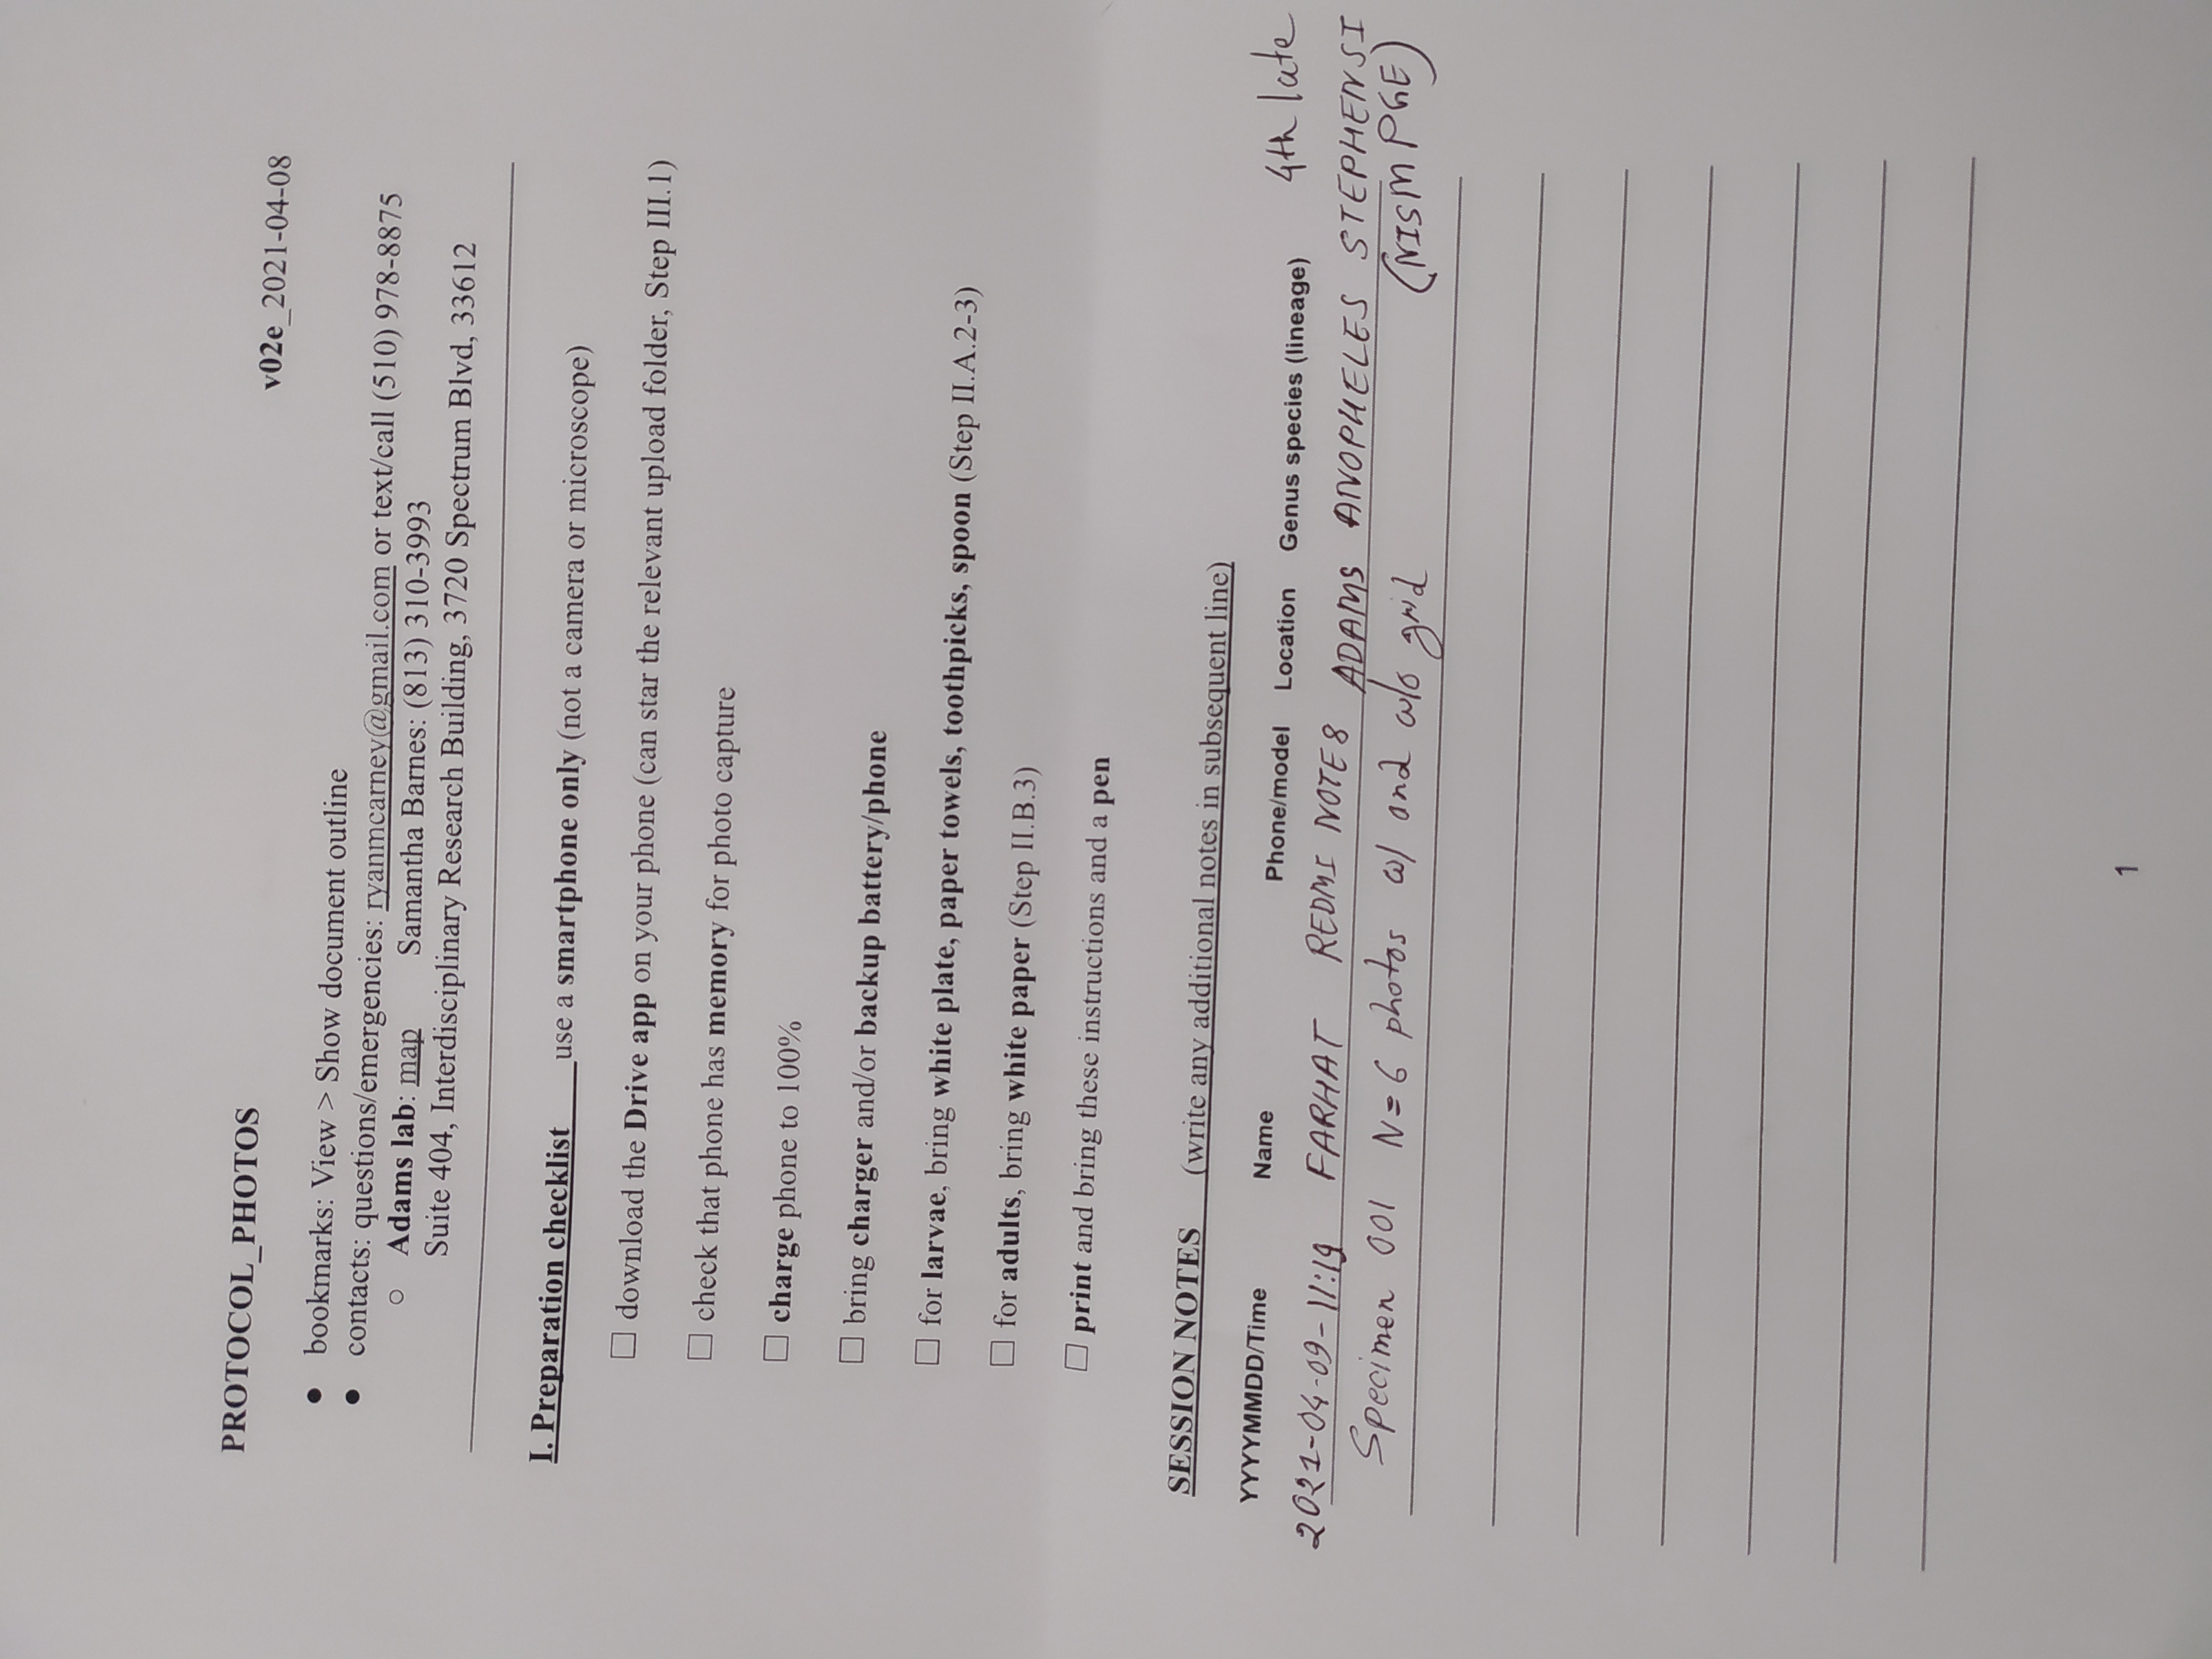 PROTOCOL_PHOTOS
v02e_2021-04-08
● bookmarks: View > Show document outline
● contacts: questions/emergencies: ryanmcarney@gmail.com or text/call (510) 978-8875
○ Adams lab: map Samantha Barnes: (813) 310-3993
Suite 404, Interdisciplinary Research Building, 3720 Spectrum Blvd, 33612
I. Preparation checklist use a smartphone only (not a camera or microscope)
☐ download the Drive app on your phone (can star the relevant upload folder, Step III.1)
☐ check that phone has memory for photo capture
☐ charge phone to 100%
☐ bring charger and/or backup battery/phone
☐ for larvae, bring white plate, paper towels, toothpicks, spoon (Step II.A.2-3)
☐ for adults, bring white paper (Step II.B.3)
☐ print and bring these instructions and a pen
SESSION NOTES (write any additional notes in subsequent line)
YYYYMMDD/Time Name Phone/model Location Genus species (lineage) 4th late
2021-04-09-11:19 FARHAT REDMI NOTE8 ADAMS ANOPHELES STEPHENSI
Specimen 001 N=6 photos w/ and w/o grid (NISM PGE)
1